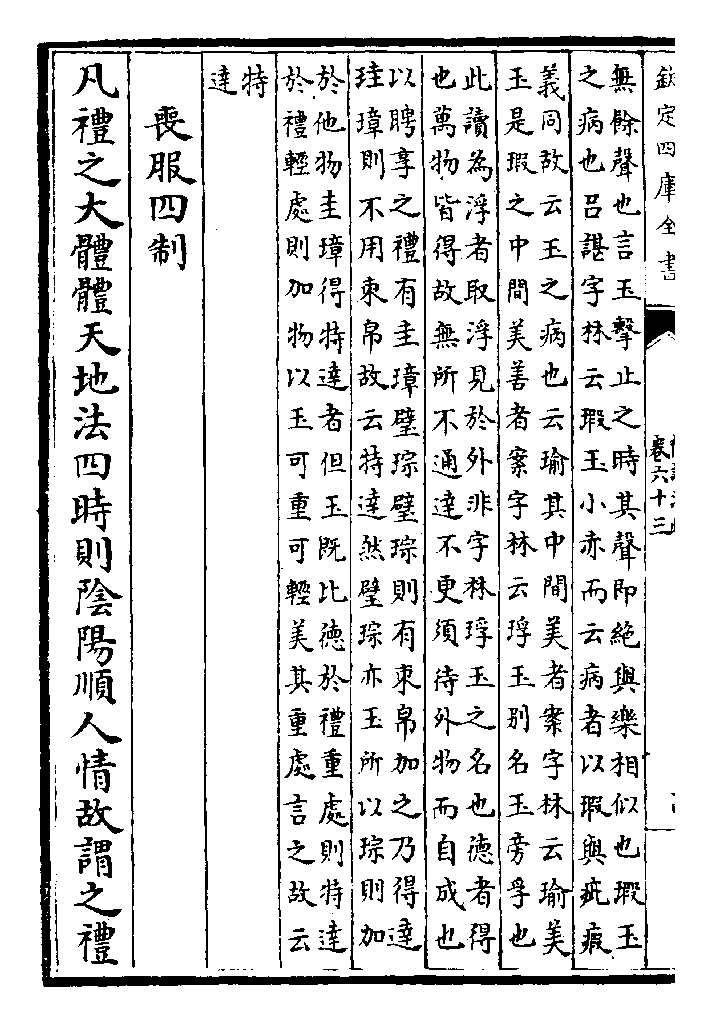 欽定四庫全書
卷六十三
無餘聲也言玉擊止之時其聲即絶與樂相似也瑕玉
之病也吕諶字林云瑕玉小赤而云病者以瑕與疵瘕
義同故云玉之病也云瑜其中間美者案字林云瑜美
玉是瑕之中間美善者案字林云琈玉别名玉旁孚也
此讀為浮者取浮見於外非字林琈玉之名也德者得
也萬物皆得故無所不通達不更須待外物而自成也
以聘享之禮有圭璋璧琮璧琮則有束帛加之乃得達
珪璋則不用束帛故云特達然璧琮亦玉所以琮則加
於他物圭璋得特達者但玉既比德於禮重處則特達
於禮輕處則加物以玉可重可輕美其重處言之故云
特
達
喪服四制
凡禮之大體體天地法四時則陰陽順人情故謂之禮